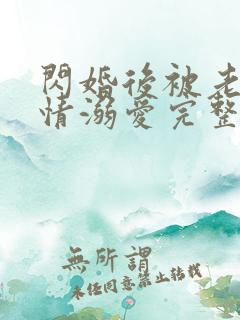 閃婚後被老
情溺愛完整
無所謂
未經同意禁止轉載